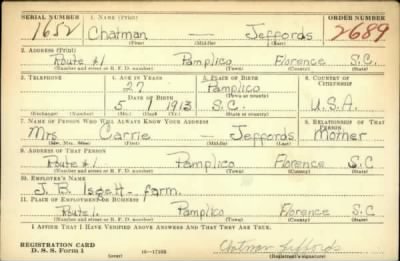 SERIAL NUMBER 1. NAME (Print) ORDER NUMBER
1652 Chatman — Jeffords 2689
(First) (Middle) (Last)
2. ADDRESS (Print)
Route #1 Pamplico Florence S.C.
(Number and street or R. F. D. number) (Town) (County) (State)
3. TELEPHONE 4. AGE IN YEARS 5. PLACE OF BIRTH 6. COUNTRY OF CITIZENSHIP
27 Pamplico
(Town or county)
DATE OF BIRTH
5 1 1913 S.C. U.S.A.
(Exchange) (Number) (Mo.) (Day) (Yr.) (State or country)
7. NAME OF PERSON WHO WILL ALWAYS KNOW YOUR ADDRESS 8. RELATIONSHIP OF THAT PERSON
Mrs Carrie — Jeffords Mother
(Mr., Mrs., Miss) (First) (Middle) (Last)
9. ADDRESS OF THAT PERSON
Route #1 Pamplico Florence S.C
(Number and street or R. F. D. number) (Town) (County) (State)
10. EMPLOYER'S NAME
J. B. Isgett - farm.
11. PLACE OF EMPLOYMENT OR BUSINESS
Route 1. Pamplico Florence S.C
(Number and street or R. F. D. number) (Town) (County) (State)
I AFFIRM THAT I HAVE VERIFIED ABOVE ANSWERS AND THAT THEY ARE TRUE.
REGISTRATION CARD
D. S. S. Form 1 (over) Chatman Jeffords
(Registrant's signature)